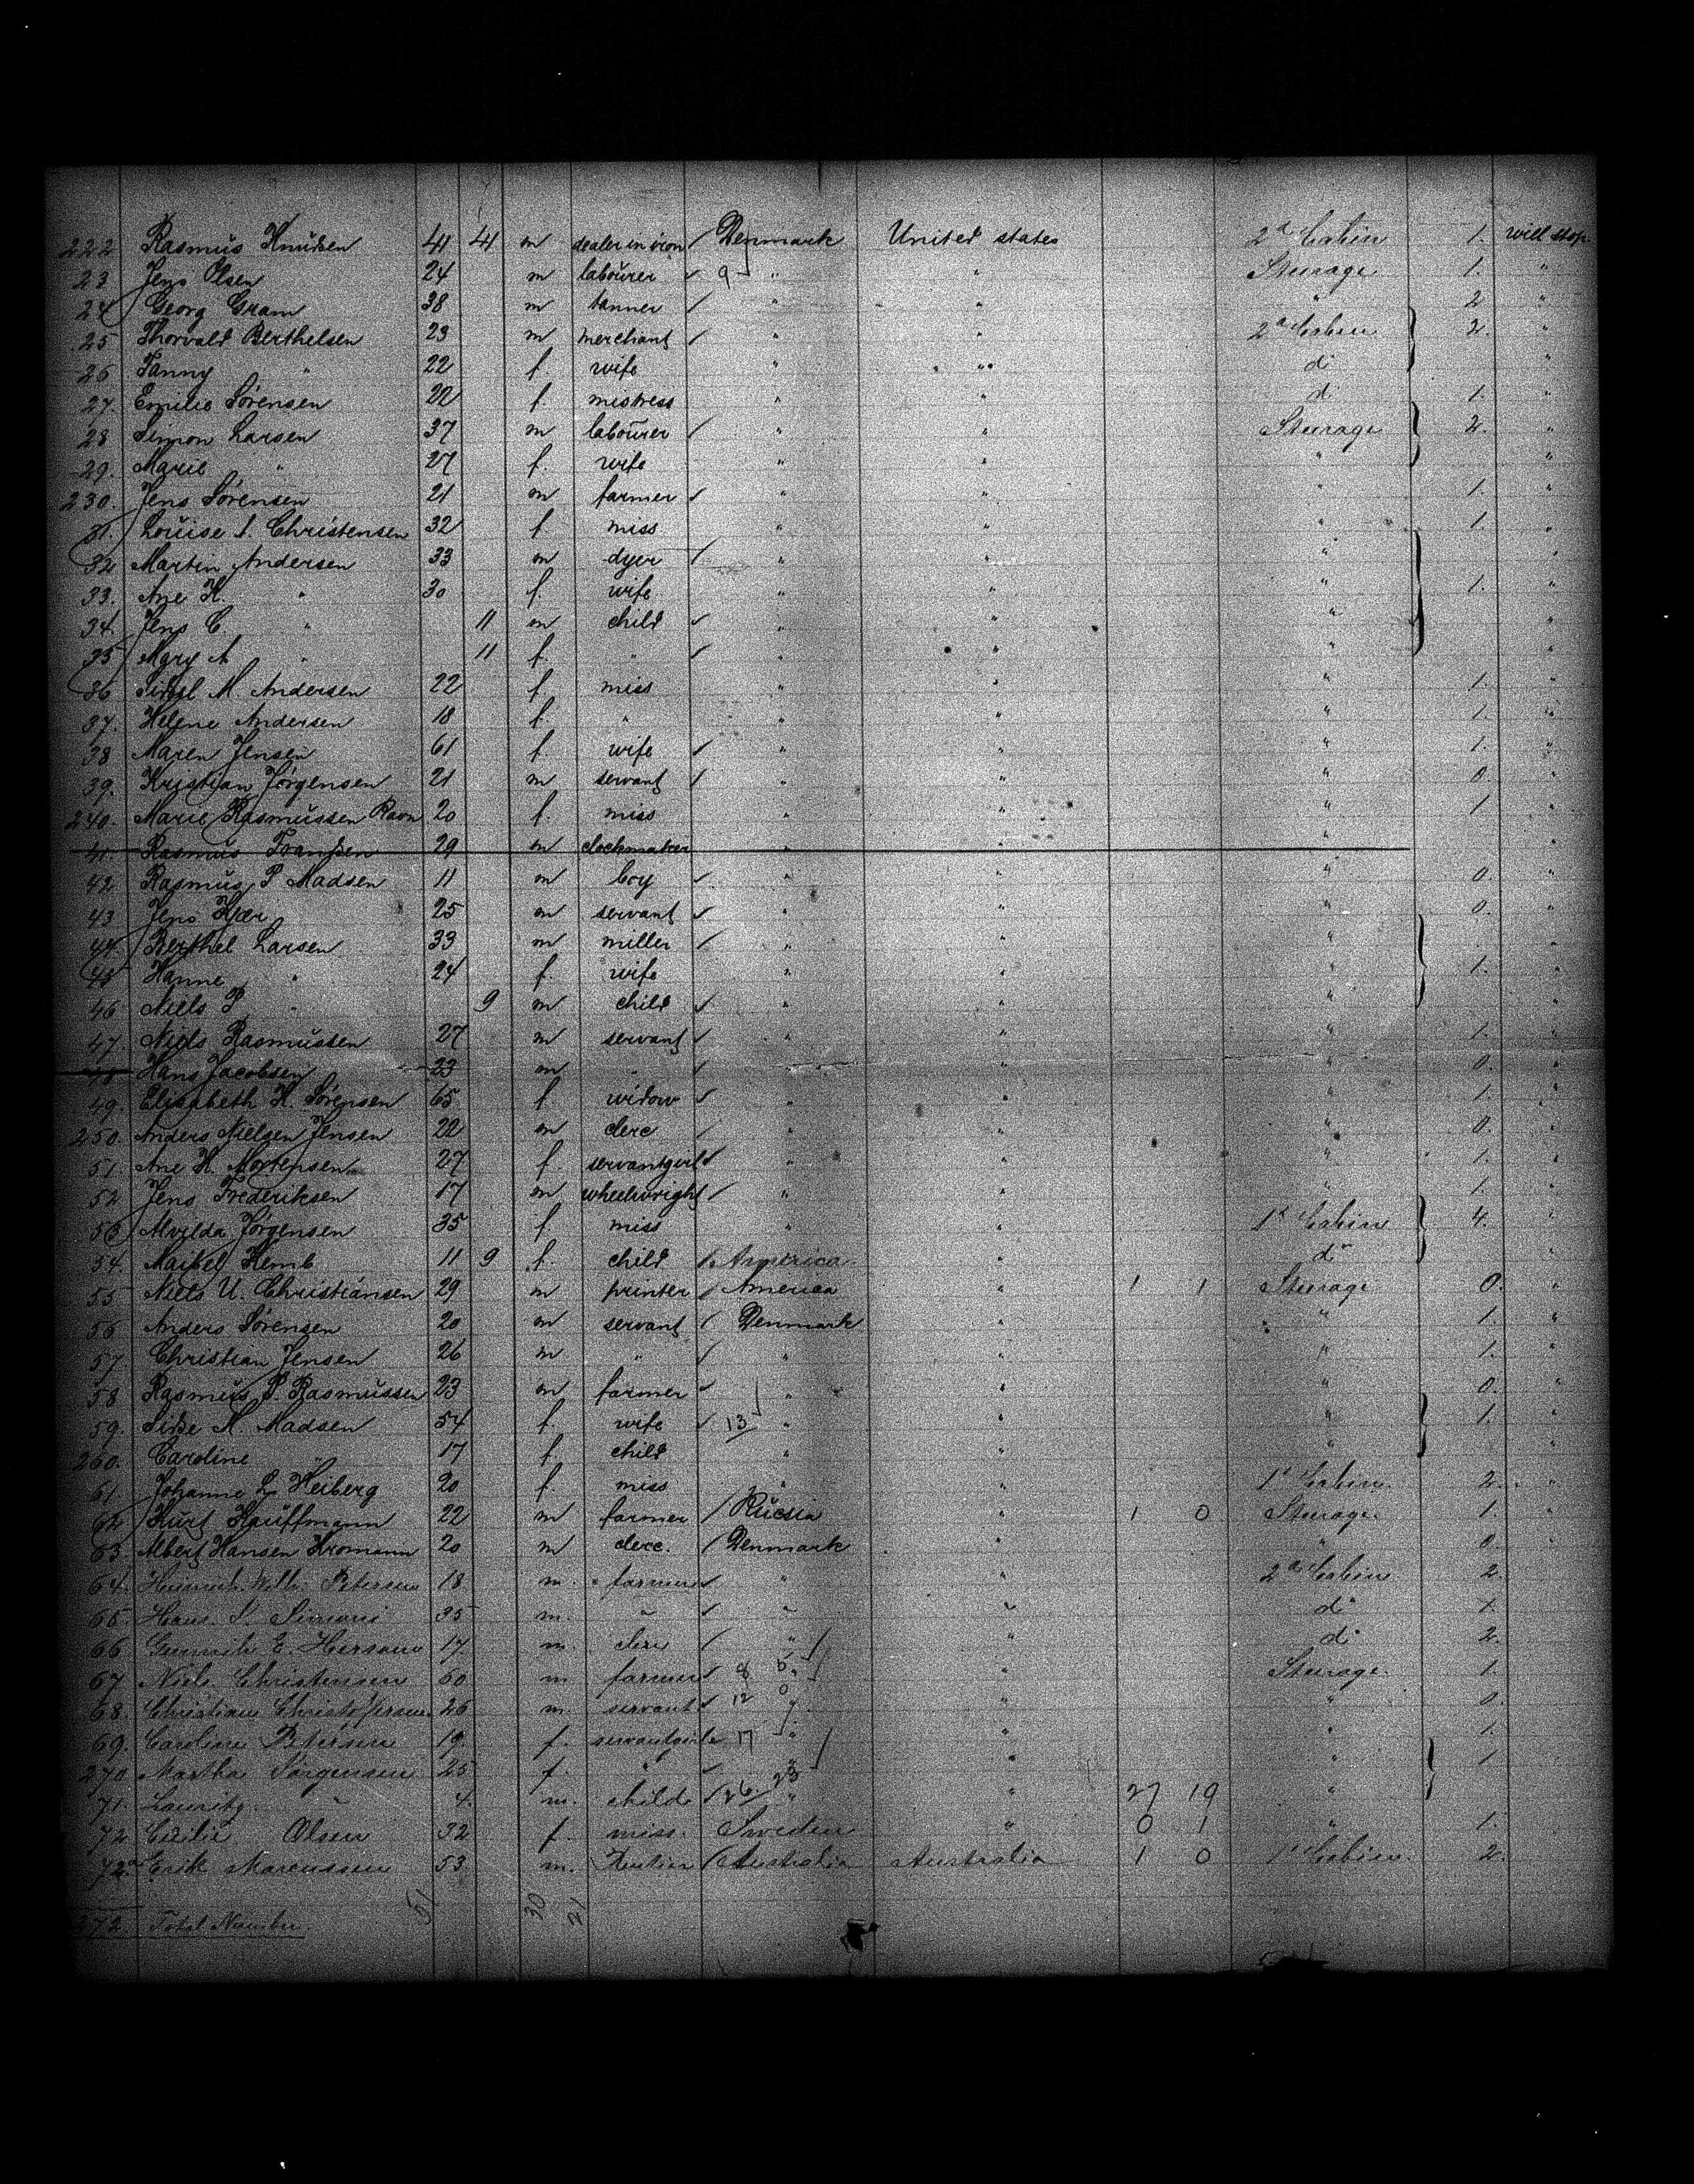 222 Rasmus Knudsen 41 41 m dealer in iron / Denmark United states 2d Cabin 1. will stop
23 Jens Olsen 24 m labourer 9 " " Steerage 1. "
24 Georg Gram 38 m tanner / " " " 2 "
25 Thorvald Berthelsen 23 m merchant / " " 2d Cabin 2. "
26 Fanny " 22 f. wife " " do "
27. Emilie Sørensen 22 f. mistress " " do 1. "
28 Simon Larsen 37 m labourer / " " Steerage 2. "
29. Marie " 27 f. wife " " " "
230. Jens Sørensen 21 m farmer " " " 1. "
31. Louise S. Christensen 32 f. miss " " " 1. "
32 Martin Andersen 33 m dyer / " " " "
33. Ane K. " 30 f. wife " " " 1. "
34. Jens C. " 11 m child " " " "
35 Mary A " 11 f. " / " " " "
36 M. Andersen 22 f. miss " " " 1. "
37. Helene Andersen 18 f. " " " " 1. "
38 Maren Jensen 61 f. wife " " " 1. "
39. Kristian Jörgensen 21 m servant / " " " 0. "
240. Marie Rasmussen Ravn 20 f. miss " " " 1. "
41. Rasmus Fransen 29 m clockmaker " " "
42 Rasmus P. Madsen 11 m boy " " " 0. "
43 Jens Kjær 25 m servant " " " 0. "
44. Berthel Larsen 33 m miller / " " "
45 Hanne " 24 f. wife " " " 1. "
46 Niels P. " 9 m child " " " "
47. Niels Rasmussen 27 m servant " " " 1. "
48 Hans Jacobsen 23 m " / " " " 0. "
49. Elisabeth K. Sørensen 65 f widow " " " 1. "
250. Anders Nielsen Jensen 22 m clerc / " " " 0. "
51. Ane K. Mortensen 27 f. servantgirl " " " 1. "
52 Jens Frederiksen 17 m wheelwright / " " " 1. "
53 Alvilda Jörgensen 35 f miss " " 1st Cabin 4. "
54. Maibel Kemb 11 9 f. child / America " do "
55 Niels U. Christiansen 29 m printer / America " 1 1 Steerage 0. "
56 Anders Sørensen 20 m servant / Denmark " " 1. "
57. Christian Jensen 26 m " / " " " 1. "
58 Rasmus P. Rasmussen 23 m farmer " " " 0. "
59. M. Madsen 54 f. wife 13 " " " 1. "
260. Caroline " 17 f child " " " "
61 Johanne L. Heiberg 20 f miss " " 1st Cabin. 2. "
62 Kurt Kauffmann 22 m farmer / Rucsia " 1 0 Steerage. 1. "
63. Albert Hansen Kromann 20 m clerc. / Denmark " " 0. "
64. Petersen 18 m. farmer " " 2d Cabin 2.
65 Hans. S. Simoni 35 m. " " " do 1.
66 17. m. clerc / " " do 2.
67 Niels Christensen 60 m farmer 8 5 " " Steerage. 1.
68. Christian Christoffersen. 26 m. servant 12 0 " " " 0.
69. Caroline Petersen 19. f. servantgirl 17 " " " 1.
270 Martha Sørgensen 25 f. " 23 " " " 1
71. Lauritz " 4. m. childe / 26 " " 27 19 "
72 Olsen 32 f. miss. Sweden " 0 1 " 1.
72a Erik Marcussen 53 m. Rentier / Australia Australia 1 0 1st Cabin. 2.
51 30 21
272. Total Number